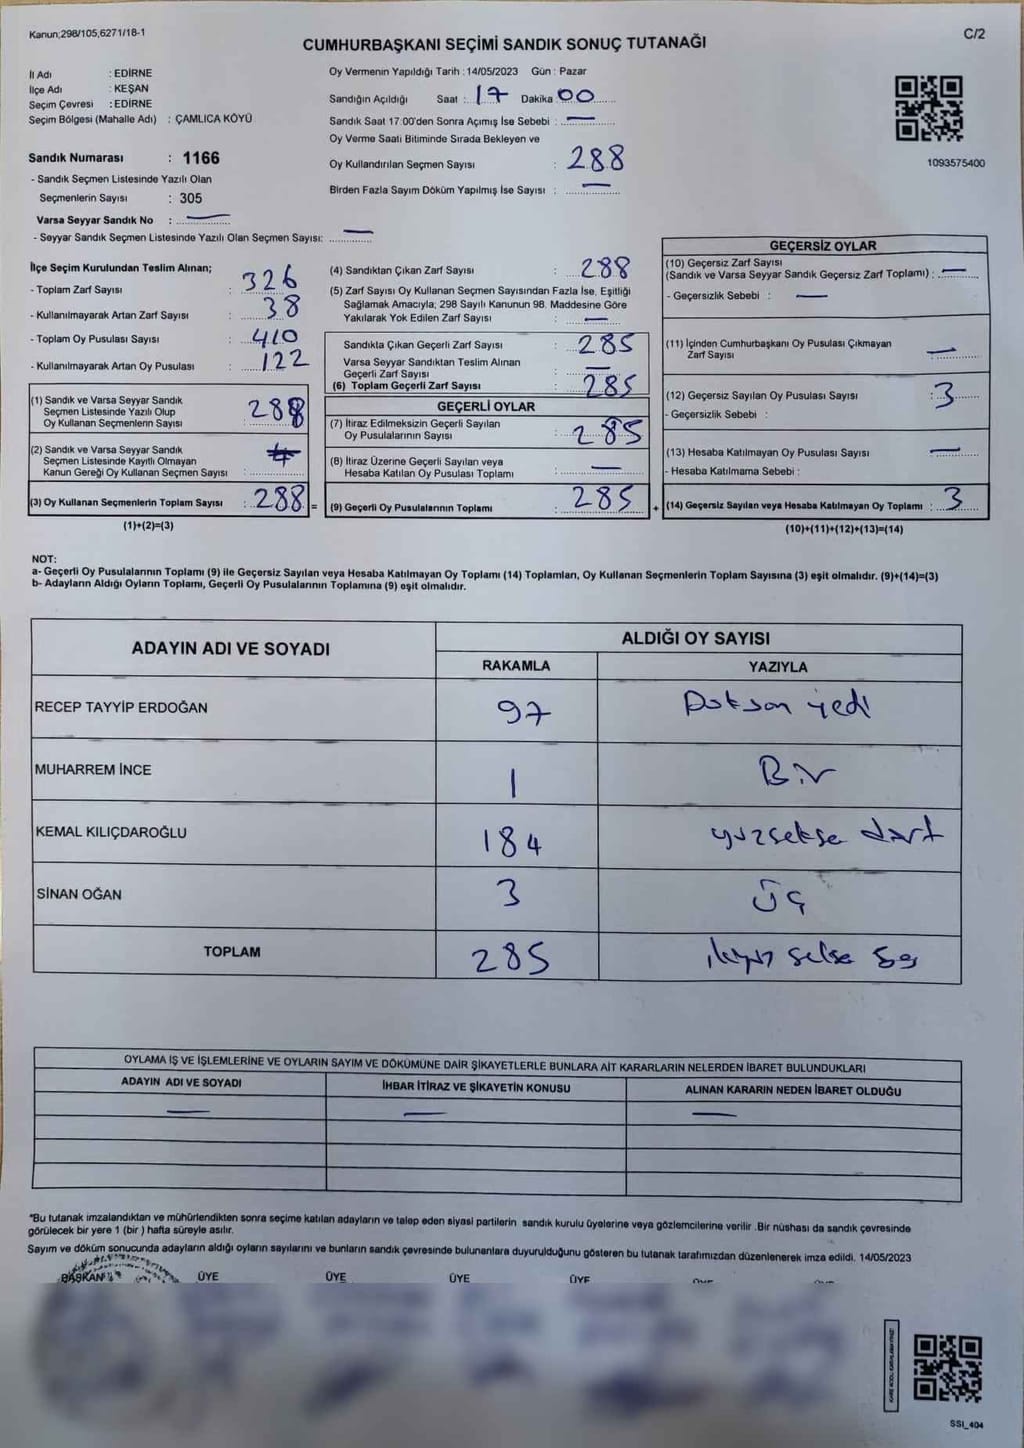 Kanun;298/105,6271/18-1
C/2
CUMHURBAŞKANI SEÇİMİ SANDIK SONUÇ TUTANAĞI
İl Adı : EDİRNE
İlçe Adı : KEŞAN
Seçim Çevresi : EDİRNE
Seçim Bölgesi (Mahalle Adı) : ÇAMLICA KÖYÜ
Sandık Numarası : 1166
- Sandık Seçmen Listesinde Yazılı Olan
Seçmenlerin Sayısı : 305
Varsa Seyyar Sandık No : —
- Seyyar Sandık Seçmen Listesinde Yazılı Olan Seçmen Sayısı: —
Oy Vermenin Yapıldığı Tarih : 14/05/2023 Gün : Pazar
Sandığın Açıldığı Saat : 17 Dakika 00
Sandık Saat 17:00'den Sonra Açımış İse Sebebi : —
Oy Verme Saati Bitiminde Sırada Bekleyen ve
Oy Kullandırılan Seçmen Sayısı : 288
Birden Fazla Sayım Döküm Yapılmış İse Sayısı : —
1093575400
İlçe Seçim Kurulundan Teslim Alınan;
- Toplam Zarf Sayısı : 326
- Kullanılmayarak Artan Zarf Sayısı : 38
- Toplam Oy Pusulası Sayısı : 410
- Kullanılmayarak Artan Oy Pusulası : 122
(1) Sandık ve Varsa Seyyar Sandık
Seçmen Listesinde Yazılı Olup
Oy Kullanan Seçmenlerin Sayısı : 288
(2) Sandık ve Varsa Seyyar Sandık
Seçmen Listesinde Kayıtlı Olmayan
Kanun Gereği Oy Kullanan Seçmen Sayısı :
(3) Oy Kullanan Seçmenlerin Toplam Sayısı : 288 =
(1)+(2)=(3)
(4) Sandıktan Çıkan Zarf Sayısı : 288
(5) Zarf Sayısı Oy Kullanan Seçmen Sayısından Fazla İse, Eşitliği
Sağlamak Amacıyla; 298 Sayılı Kanunun 98. Maddesine Göre
Yakılarak Yok Edilen Zarf Sayısı : —
Sandıkta Çıkan Geçerli Zarf Sayısı : 285
Varsa Seyyar Sandıktan Teslim Alınan
Geçerli Zarf Sayısı : —
(6) Toplam Geçerli Zarf Sayısı : 285
GEÇERLİ OYLAR
(7) İtiraz Edilmeksizin Geçerli Sayılan
Oy Pusulalarının Sayısı : 285
(8) İtiraz Üzerine Geçerli Sayılan veya
Hesaba Katılan Oy Pusulası Toplamı : —
(9) Geçerli Oy Pusulalarının Toplamı : 285 +
GEÇERSİZ OYLAR
(10) Geçersiz Zarf Sayısı
(Sandık ve Varsa Seyyar Sandık Geçersiz Zarf Toplamı) : —
- Geçersizlik Sebebi : —
(11) İçinden Cumhurbaşkanı Oy Pusulası Çıkmayan
Zarf Sayısı : —
(12) Geçersiz Sayılan Oy Pusulası Sayısı : 3
- Geçersizlik Sebebi :
(13) Hesaba Katılmayan Oy Pusulası Sayısı : —
- Hesaba Katılmama Sebebi :
(14) Geçersiz Sayılan veya Hesaba Katılmayan Oy Toplamı : 3
(10)+(11)+(12)+(13)=(14)
NOT:
a- Geçerli Oy Pusulalarının Toplamı (9) ile Geçersiz Sayılan veya Hesaba Katılmayan Oy Toplamı (14) Toplamları, Oy Kullanan Seçmenlerin Toplam Sayısına (3) eşit olmalıdır. (9)+(14)=(3)
b- Adayların Aldığı Oyların Toplamı, Geçerli Oy Pusulalarının Toplamına (9) eşit olmalıdır.
ADAYIN ADI VE SOYADI
ALDIĞI OY SAYISI
RAKAMLA YAZIYLA
RECEP TAYYİP ERDOĞAN 97 Doksan yedi
MUHARREM İNCE 1 Bir
KEMAL KILIÇDAROĞLU 184 yüzsekse dört
SİNAN OĞAN 3 Üç
TOPLAM 285
OYLAMA İŞ VE İŞLEMLERİNE VE OYLARIN SAYIM VE DÖKÜMÜNE DAİR ŞİKAYETLERLE BUNLARA AİT KARARLARIN NELERDEN İBARET BULUNDUKLARI
ADAYIN ADI VE SOYADI İHBAR İTİRAZ VE ŞİKAYETİN KONUSU ALINAN KARARIN NEDEN İBARET OLDUĞU
— — —
*Bu tutanak imzalandıktan ve mühürlendikten sonra seçime katılan adayların ve talep eden siyasi partilerin sandık kurulu üyelerine veya gözlemcilerine verilir .Bir nüshası da sandık çevresinde
görülecek bir yere 1 (bir ) hafta süreyle asılır.
Sayım ve döküm sonucunda adayların aldığı oyların sayılarını ve bunların sandık çevresinde bulunanlara duyurulduğunu gösteren bu tutanak tarafımızdan düzenlenerek imza edildi. 14/05/2023
BAŞKAN ÜYE ÜYE ÜYE ÜYE
SSI_404